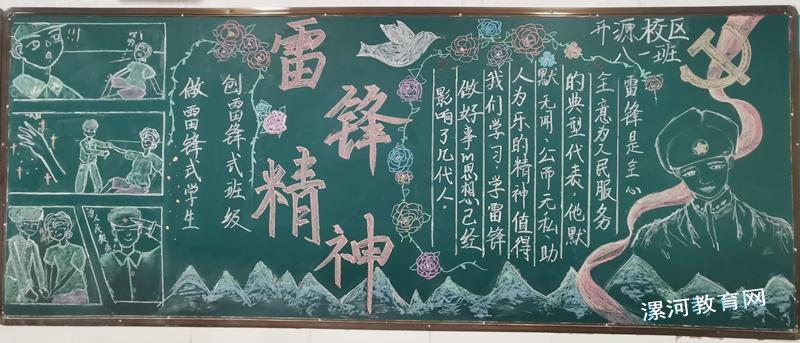 开源校区
八一班
雷锋是全心
全意为人民服务
的典型代表,他默
默无闻,公而无私助
人为乐的精神值得
我们学习,学雷锋
做好事的思想已经
影响了几代人。
雷锋精神
创雷锋式班级
做雷锋式学生
为人民服务
漯河教育网